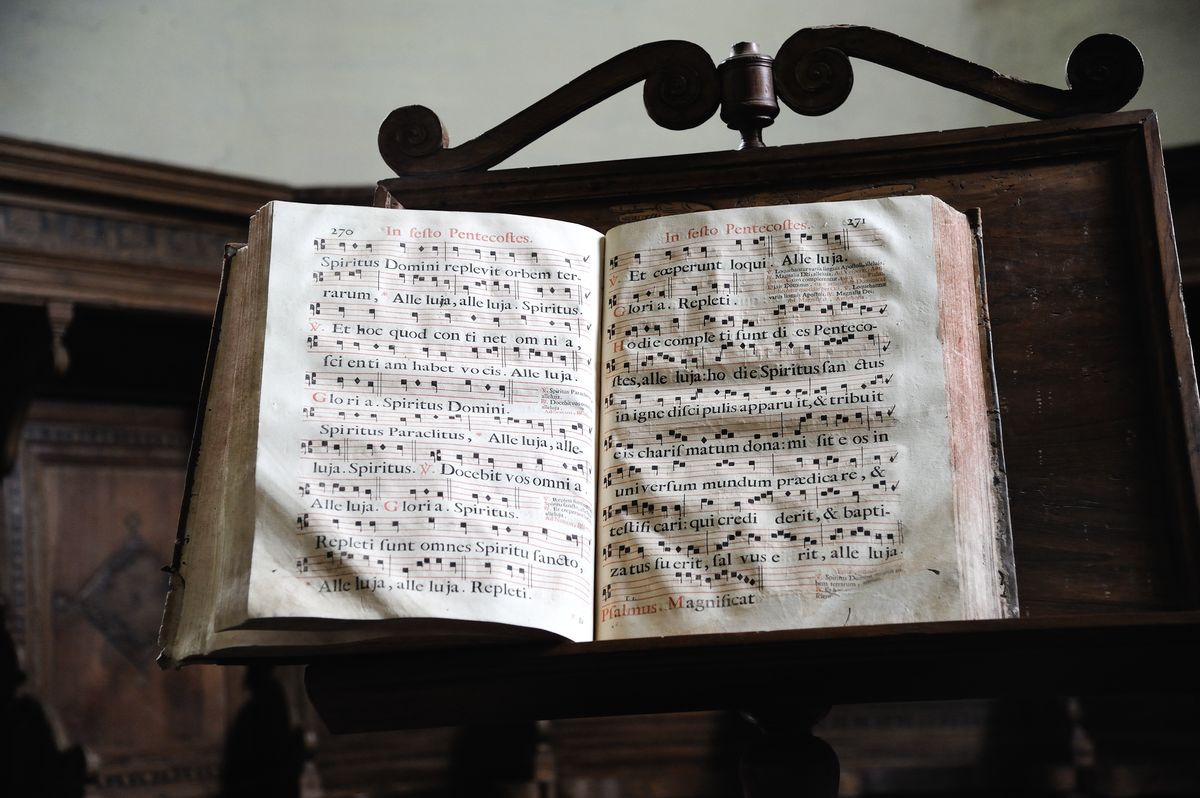 270 In feſto Pentecoſtes.
Spiritus Domini replevit orbem ter-
rarum, * Alle luja, alle luja. Spiritus.
℣. Et hoc quod con ti net om ni a,
ſci enti am habet vo cis. Alle luja.
Glori a. Spiritus Domini.
℣. Spiritus Para
alleluja.
℟. Docebit vos
Spiritus Paraclitus, * Alle luja, alle-
luja. Spiritus. ℣. Docebit vos omni a
Alle luja. Glori a. Spiritus.
Repleti ſunt omnes Spiritu ſancto,
* Alle luja, alle luja. Repleti.
In feſto Pentecoſtes. 271
℣. Et cœperunt loqui. Alle luja.
Glori a. Repleti.
Hodie comple ti ſunt di es Penteco-
ſtes, alle luja: ho die Spiritus ſan ctus
in igne diſci pulis apparu it, & tribuit
eis chariſ matum dona: mi ſit e os in
uni verſum mundum prædica re, &
teſtifi cari: qui credi derit, & bapti-
zatus fu erit, ſal vus e rit, alle luja.
Pſalmus. Magnificat